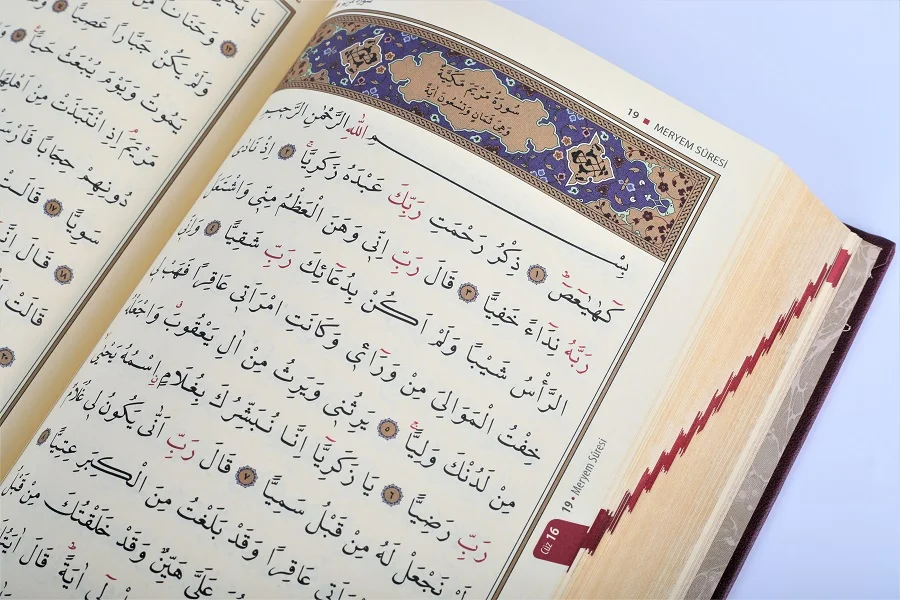 19 ■ MERYEM SÛRESİ
سُورَةُ مَرْيَمَ مَكِّيَّةٌ
وَهِيَ ثَمَانٍ وَتِسْعُونَ اٰيَةً
بِسْمِ اللّٰهِ الرَّحْمٰنِ الرَّحِيمِ
كٓهٰيٰعٓصٓ ﴿١﴾ ذِكْرُ رَحْمَتِ رَبِّكَ عَبْدَهُ زَكَرِيَّاۚ ﴿٢﴾ اِذْ نَادٰى
رَبَّهُ نِدَٓاءً خَفِيًّا ﴿٣﴾ قَالَ رَبِّ اِنّ۪ي وَهَنَ الْعَظْمُ مِنّ۪ي وَاشْتَعَلَ
الرَّأْسُ شَيْبًا وَلَمْ اَكُنْ بِدُعَٓائِكَ رَبِّ شَقِيًّا ﴿٤﴾ وَاِنّ۪ي
خِفْتُ الْمَوَالِيَ مِنْ وَرَٓاء۪ي وَكَانَتِ امْرَاَت۪ي عَاقِرًا فَهَبْ ل۪ي
مِنْ لَدُنْكَ وَلِيًّاۙ ﴿٥﴾ يَرِثُن۪ي وَيَرِثُ مِنْ اٰلِ يَعْقُوبَۗ وَاجْعَلْهُ
رَبِّ رَضِيًّا ﴿٦﴾ يَا زَكَرِيَّٓا اِنَّا نُبَشِّرُكَ بِغُلَامٍۨ اسْمُهُ يَحْيٰىۙ
لَمْ نَجْعَلْ لَهُ مِنْ قَبْلُ سَمِيًّا ﴿٧﴾ قَالَ رَبِّ اَنّٰى يَكُونُ ل۪ي غُلَامٌ
امْرَاَت۪ي عَاقِرًا وَقَدْ بَلَغْتُ مِنَ الْكِبَرِ عِتِيًّا
عَلَيَّ هَيِّنٌ وَقَدْ خَلَقْتُكَ مِنْ قَبْلُ
ل۪ٓي اٰيَةًۜ قَالَ اٰيَتُكَ
19 ■ Meryem Sûresi
Cüz 16
يَا يَحْيٰى
وَحَنَانًا مِنْ
وَلَمْ يَكُنْ جَبَّارًا عَصِيًّا
يَمُوتُ وَيَوْمَ يُبْعَثُ حَيًّا
مَرْيَمَۢ اِذِ انْتَبَذَتْ مِنْ اَهْلِهَا
دُونِهِمْ حِجَابًا فَاَرْسَلْنَا
سَوِيًّا ﴿١٧﴾ قَالَتْ
﴿١٨﴾ قَالَ اِنَّمَا
قَالَتْ